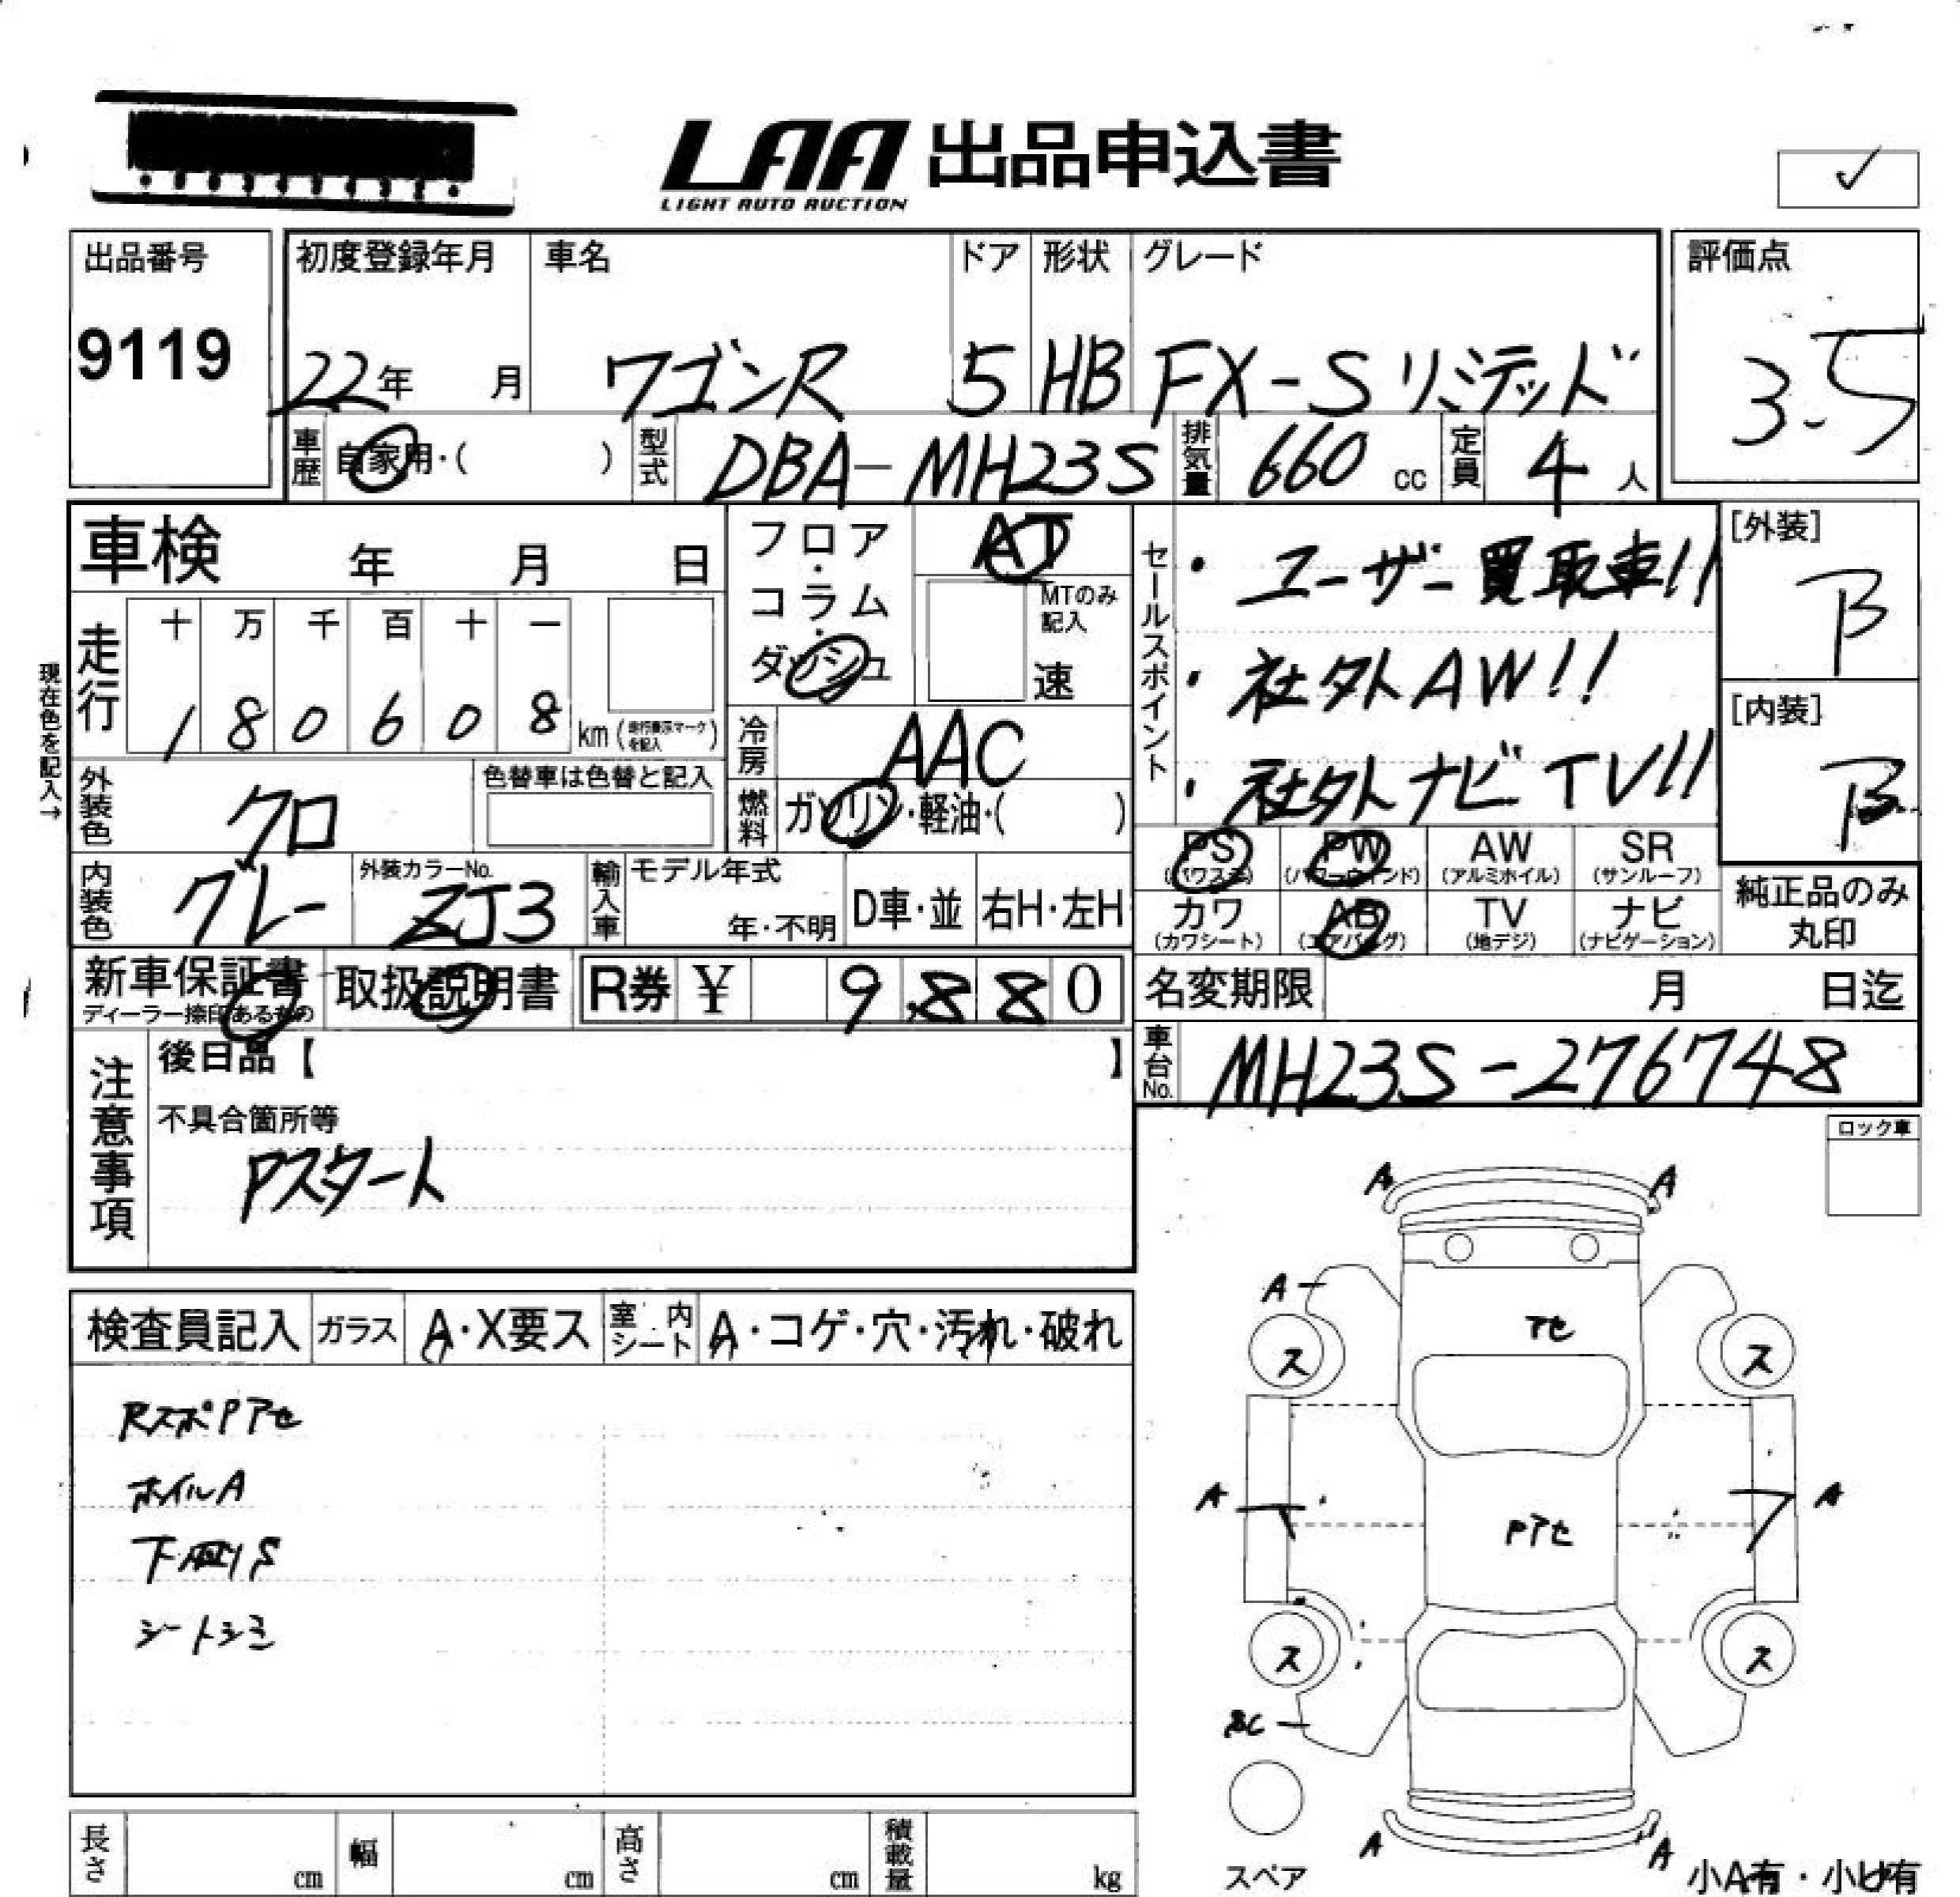 LAA 出品申込書
LIGHT AUTO AUCTION
✓
出品番号
9119
初度登録年月
22年 月
車名
ワゴンR
ドア
5
形状
HB
グレード
FX-S リミテッド
評価点
3.5
車歴 自家用・( )
型式 DBA-MH23S
排気量 660 cc
定員 4 人
車検 年 月 日
フロア・コラム・ダッシュ
AT
MTのみ記入
速
セールスポイント
・ユーザー買取車!!
・社外AW!!
・社外ナビTV!!
[外装]
B
[内装]
B
現在色を記入→
走行
十 万 千 百 十 一
1 8 0 6 0 8 km (走行表示マークを記入)
冷房 AAC
外装色 クロ
色替車は色替と記入
燃料 ガソリン・軽油・( )
内装色 グレー
外装カラーNo. ZJ3
輸入車
モデル年式
年・不明
D車・並
右H・左H
PS (パワステ)
PW (パワーウインド)
AW (アルミホイル)
SR (サンルーフ)
カワ (カワシート)
AB (エアバッグ)
TV (地デジ)
ナビ (ナビゲーション)
純正品のみ
丸印
新車保証書
ディーラー捺印あるもの
取扱説明書
R券 ¥ 9.880
名変期限 月 日迄
車台No. MH23S-276748
注意事項
後日品【 】
不具合箇所等
Pスタート
ロック車
検査員記入
ガラス A・X要ス
室内シート A・コゲ・穴・汚れ・破れ
RスポPアセ
ホイルA
下廻りS
シートシミ
A A
A
アセ
ス ス
A A
Pアセ
ス ス
A A
スペア
小A有・小U有
長さ cm
幅 cm
高さ cm
積載量 kg